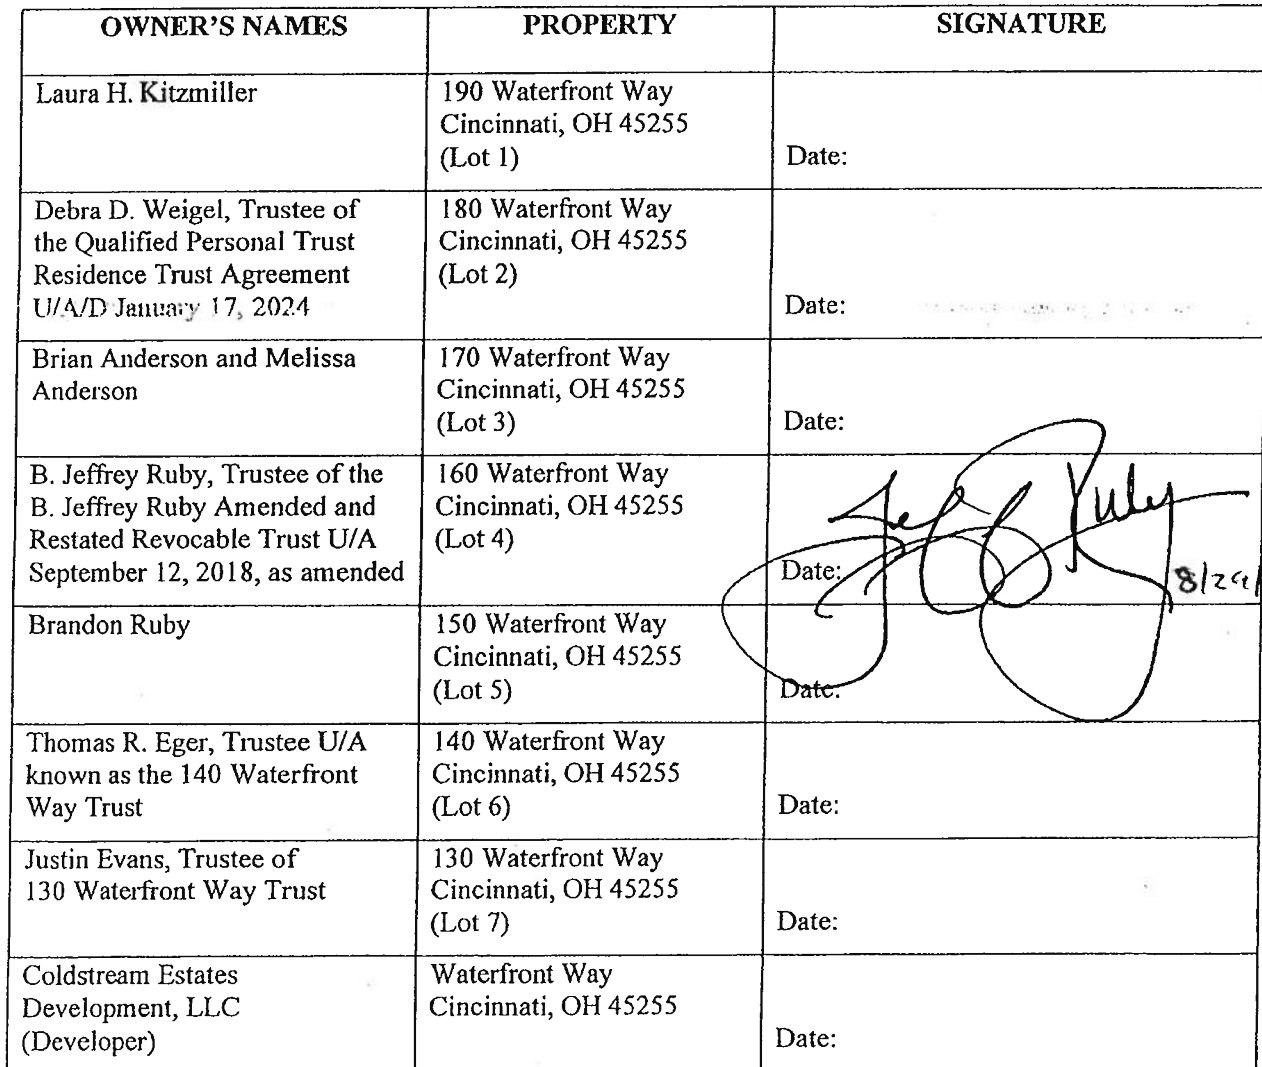 OWNER'S NAMES PROPERTY SIGNATURE
Laura H. Kitzmiller
190 Waterfront Way
Cincinnati, OH 45255
(Lot 1)
Date:
Debra D. Weigel, Trustee of
the Qualified Personal Trust
Residence Trust Agreement
U/A/D January 17, 2024
180 Waterfront Way
Cincinnati, OH 45255
(Lot 2)
Date:
Brian Anderson and Melissa
Anderson
170 Waterfront Way
Cincinnati, OH 45255
(Lot 3)
Date:
B. Jeffrey Ruby, Trustee of the
B. Jeffrey Ruby Amended and
Restated Revocable Trust U/A
September 12, 2018, as amended
160 Waterfront Way
Cincinnati, OH 45255
(Lot 4)
Jeff Ruby
Date: 8/29/
Brandon Ruby
150 Waterfront Way
Cincinnati, OH 45255
(Lot 5)
Date:
Thomas R. Eger, Trustee U/A
known as the 140 Waterfront
Way Trust
140 Waterfront Way
Cincinnati, OH 45255
(Lot 6)
Date:
Justin Evans, Trustee of
130 Waterfront Way Trust
130 Waterfront Way
Cincinnati, OH 45255
(Lot 7)
Date:
Coldstream Estates
Development, LLC
(Developer)
Waterfront Way
Cincinnati, OH 45255
Date: